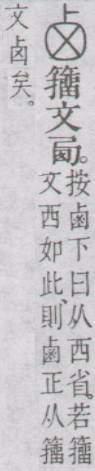 籒文卥。
按鹵下曰从西省。若籒
文西如此、則鹵正从籒
文卥矣。